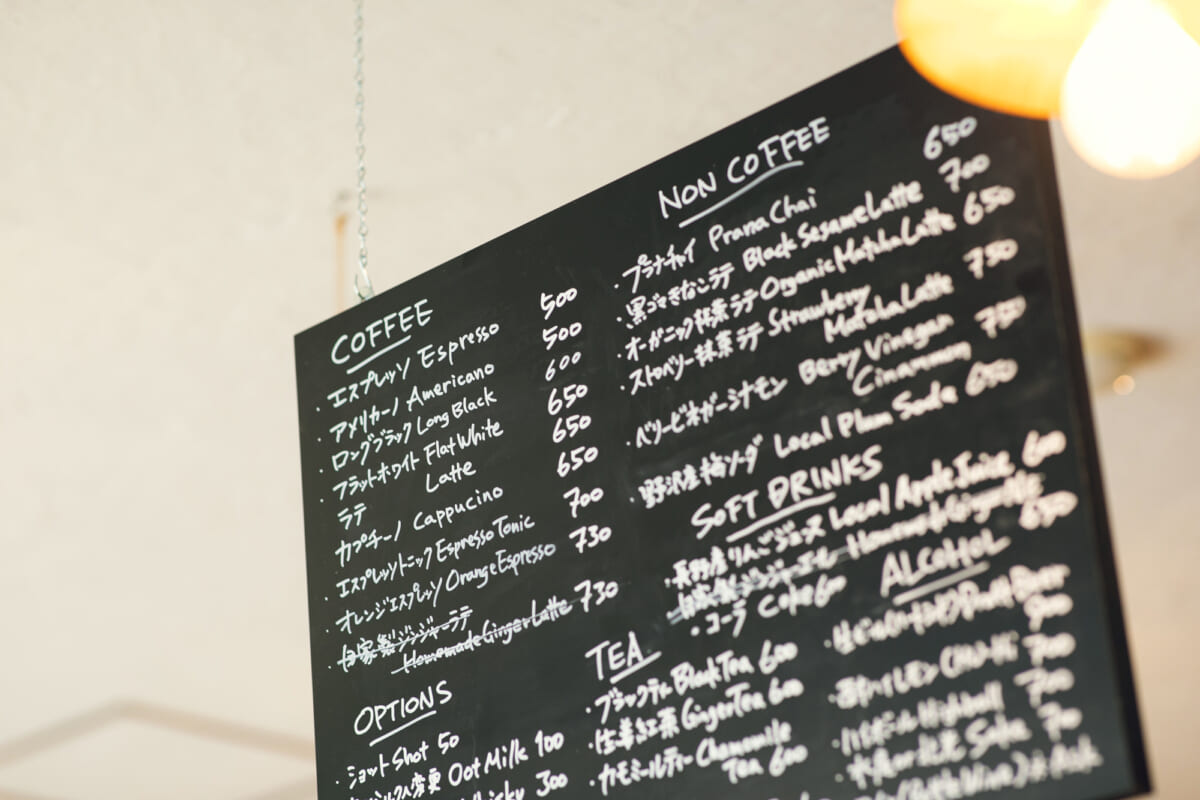 COFFEE
・エスプレッソ Espresso 500
・アメリカーノ Americano 500
・ロングブラック Long Black 600
・フラットホワイト Flat White 650
・ラテ Latte 650
・カプチーノ Cappucino 650
・エスプレッソトニック Espresso Tonic 700
・オレンジエスプレッソ Orange Espresso 730
・自家製ジンジャーラテ
Homemade Ginger Latte 730
OPTIONS
・ショット Shot 50
変更 Oat Milk 100
300
NON COFFEE
・プラナチャイ Prana Chai 650
・黒ゴマきなこラテ Black Sesame Latte 700
・オーガニック抹茶ラテ Organic Matcha Latte 650
・ストロベリー抹茶ラテ Strawberry
Matcha Latte 750
・ベリービネガーシナモン Berry Vinegar
Cinnamon 750
・野沢産梅ソーダ Local Plum Soda 650
SOFT DRINKS
・長野産りんごジュース Local Apple Juice 600
・自家製ジンジャーエール Homemade Ginger Ale 650
・コーラ Coke 600
TEA
・ブラックティー Black Tea 600
・生姜紅茶 Ginger Tea 600
・カモミールティー Chamomile
Tea 600
ALCOHOL
Draft Beer
900
レモン CHU-Hi 700
・ハイボール Highball 700
Sake 70